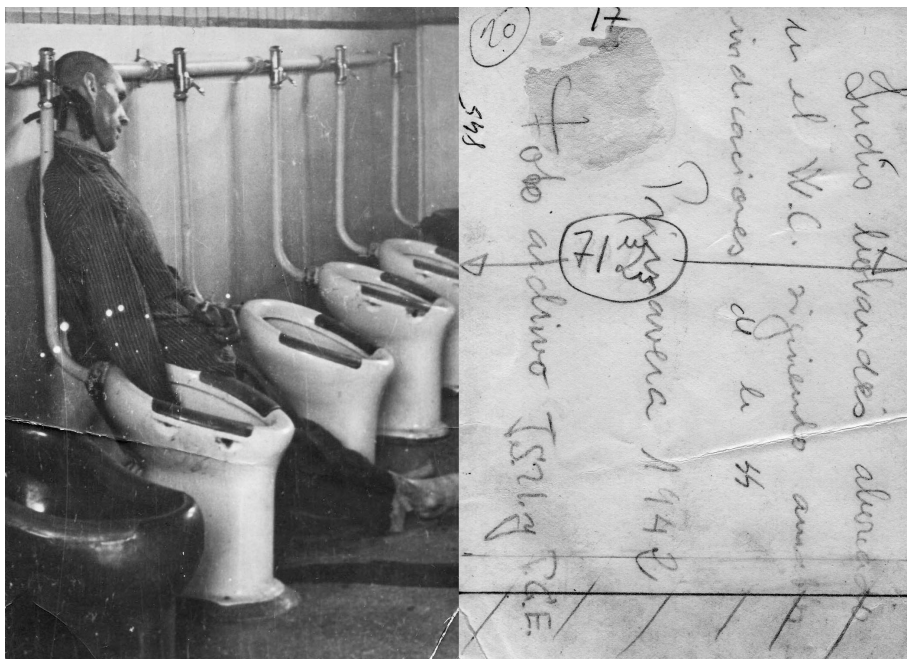 Judío holandés ahorcado
en el W.C. siguiendo
indicaciones de la SS
Primavera 1942
Foto archivo J.S.U. y P.C.E.
20
17
548
71